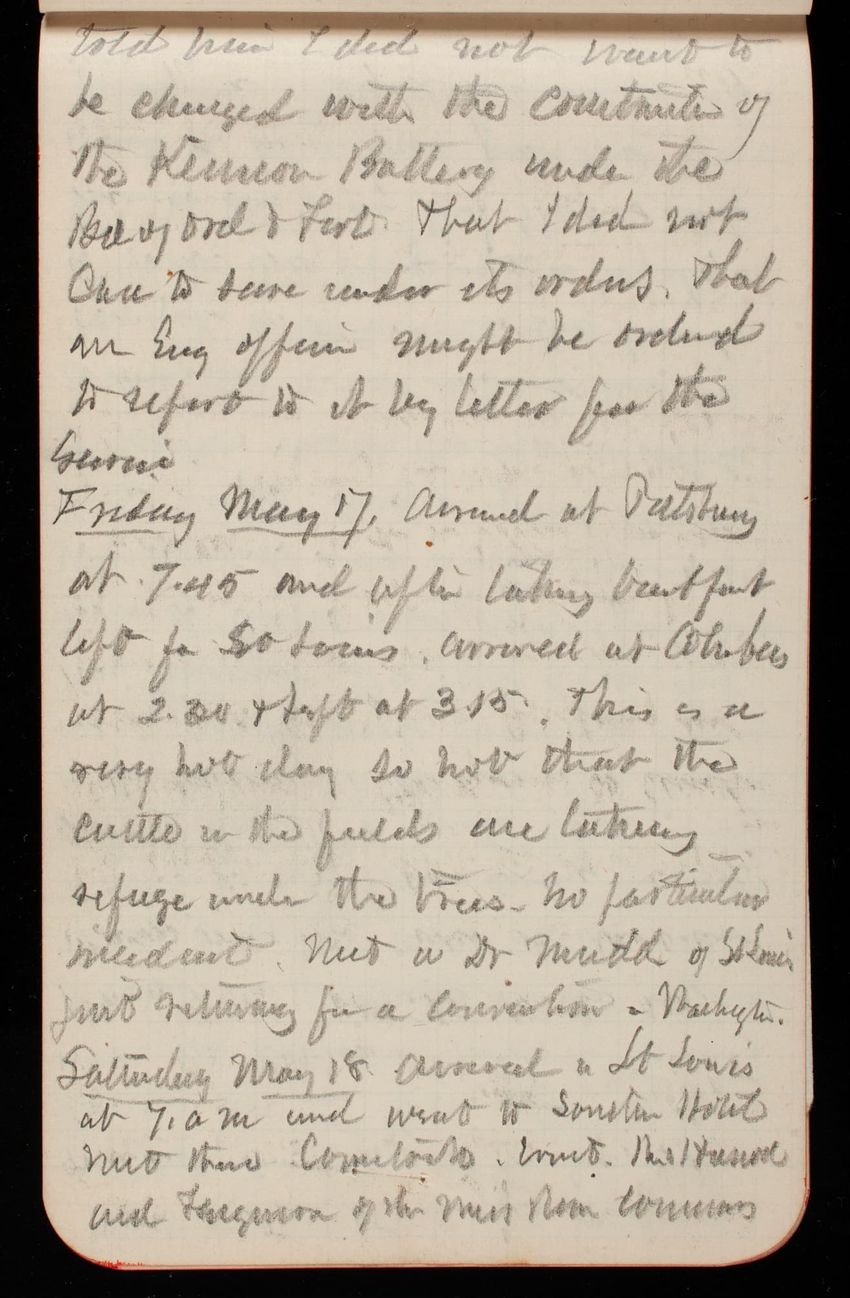 told him I did not want to
be charged with the construction of
the Kennon Battery under the
Bd of Ord & Fort. That I did not
Care to serve under its orders. That
an Eng officer might be ordered
to report to it by letter for the
service
Friday May 17, arrived at Pittsburg
at 7.45 and after taking breakfast
left for St Louis. arrived at Columbus
at 2.30 & left at 3.15. This is a
very hot day so hot that the
cattle in the fields are taking
refuge under the trees - no particular
incident. Met a Dr Mudd of St Louis
just returning from a convention in Washington.
Saturday May 18 arrived in St Louis
at 7. a m and went to Southern Hotel
met there Comstock. Ernst.
and Ferguson of the Miss River Commis